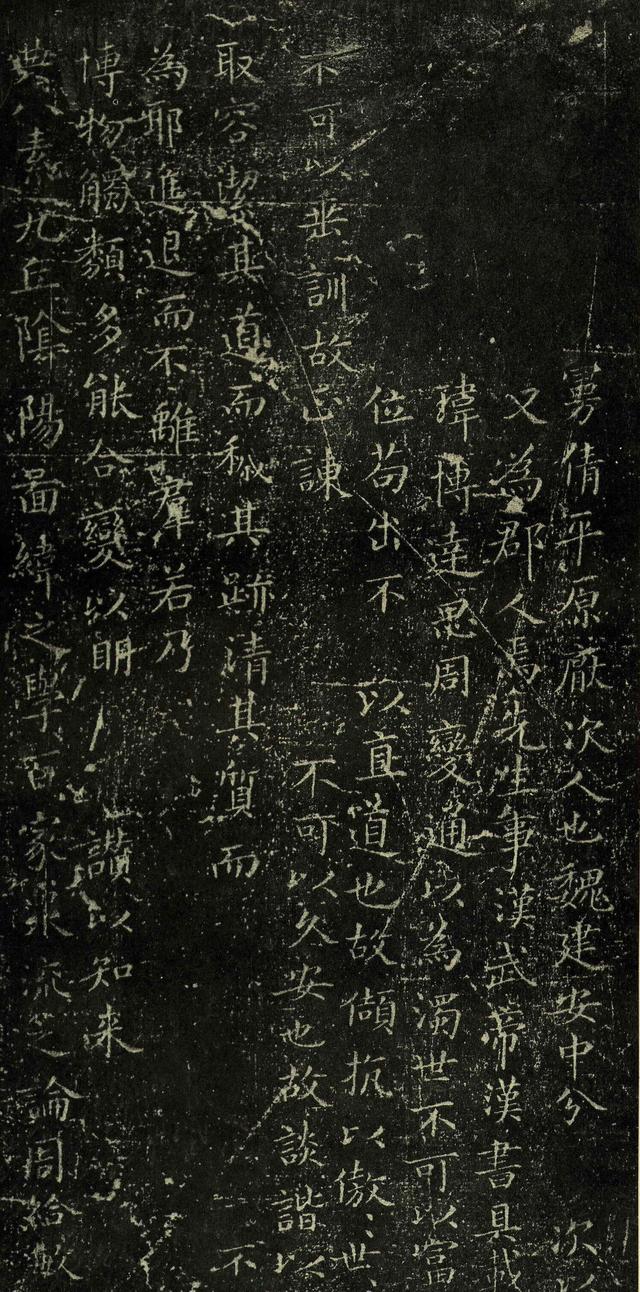 曼倩平原厭次人也魏建安中分 次以
又為郡人焉先生事漢武帝漢書具載
瑋博達思周變通以為濁世不可以富
位苟出不 以直道也故傾抗以傲〻世〻
不可以垂訓故正諫 不可以久安也故談諧以
取容潔其道而穢其跡清其質而
為耶進退而不離羣若乃 不
博物觸類多能合變以明 讃以知来
典八素九丘陰陽圖緯之學百家衆流之論周給敏